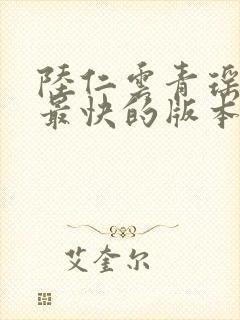 陸仁雲青瑶
最快的版本
艾奎尔